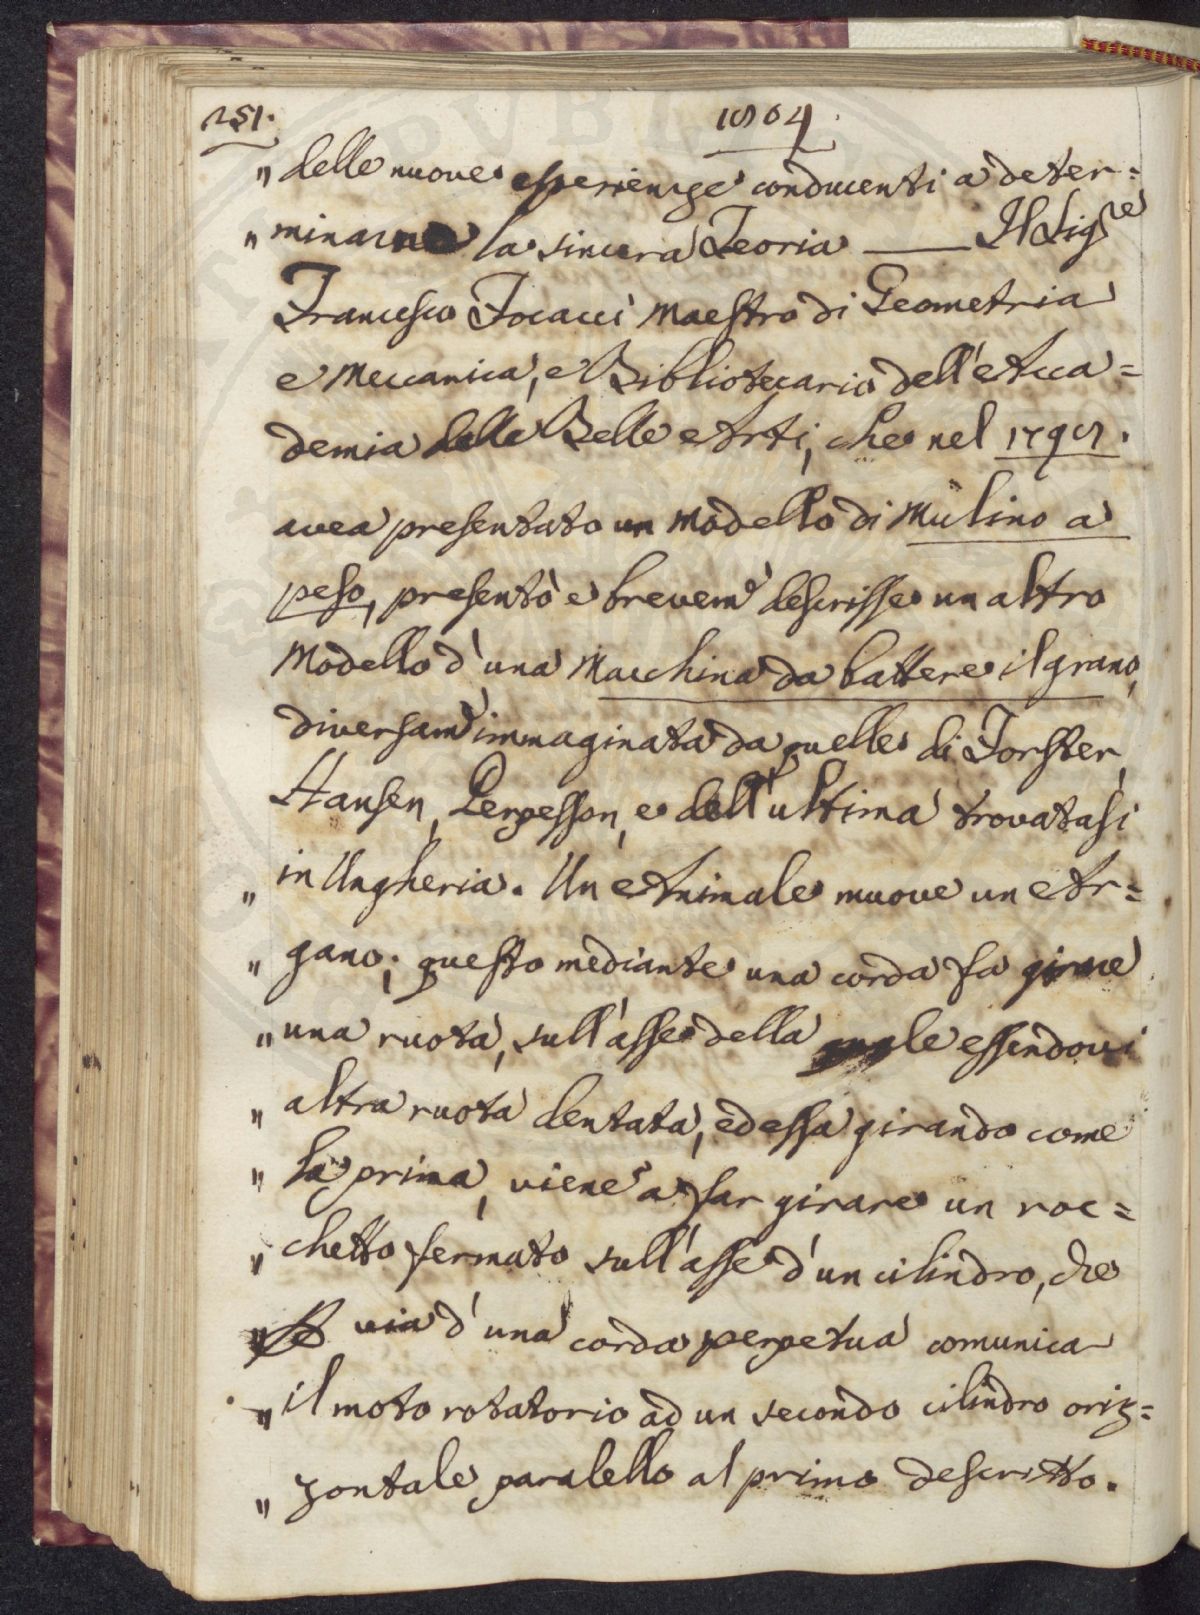 251.
1804.
" delle nuove esperienze conducenti a deter=
" minarne la sincera Teoria —— Il Sig.re
Francesco Focacci Maestro di Geometria
e Meccanica, e Bibliotecario dell'Acca=
demia delle Belle Arti, che nel 1798.
avea presentato un modello di Mulino a
peso, presentò e brevem.e descrisse un altro
Modello d'una Macchina da battere il grano,
diversam.e immaginata da quelle di Forster,
Hansen, Perpesson, e dell'ultima trovatasi
" in Ungheria. Un Animale muove un Ar=
" gano; questo mediante una corda fa girare
" una ruota, sull'asse della quale essendovi
" altra ruota dentata, ed essa girando come
" la prima, viene a far girare un roc=
" chetto fermato sull'asse d'un cilindro, che
" via d'una corda perpetua comunica
" il moto rotatorio ad un secondo cilindro oriz=
" zontale paralello al primo descritto.